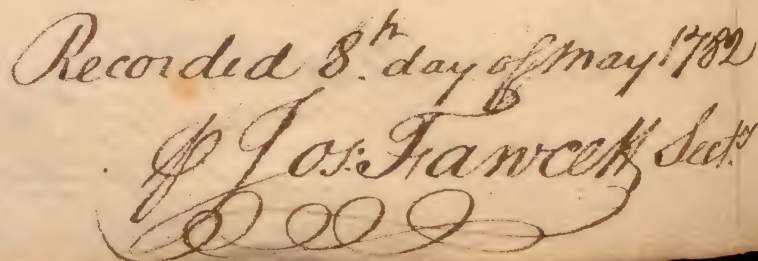 Recorded 8.th day of May 1782
⅌ Jos: Fawcett Sect.y